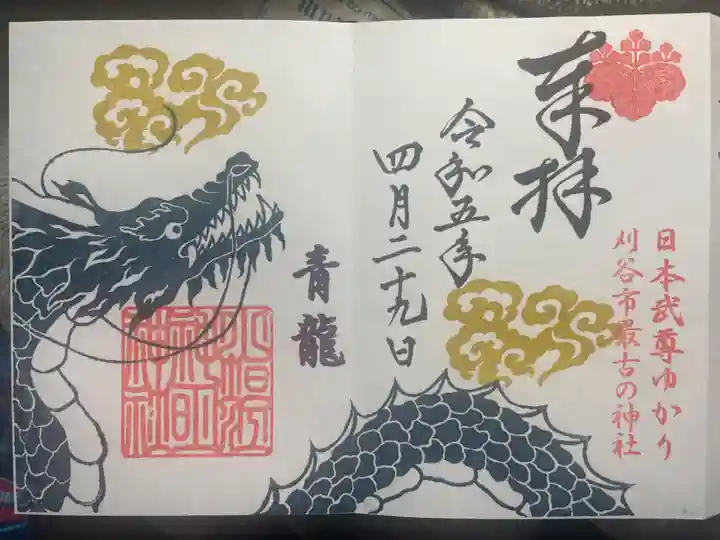 奉拝
日本武尊ゆかり
刈谷市最古の神社
令和五年
四月二十九日
青龍
小垣江
神明
神社